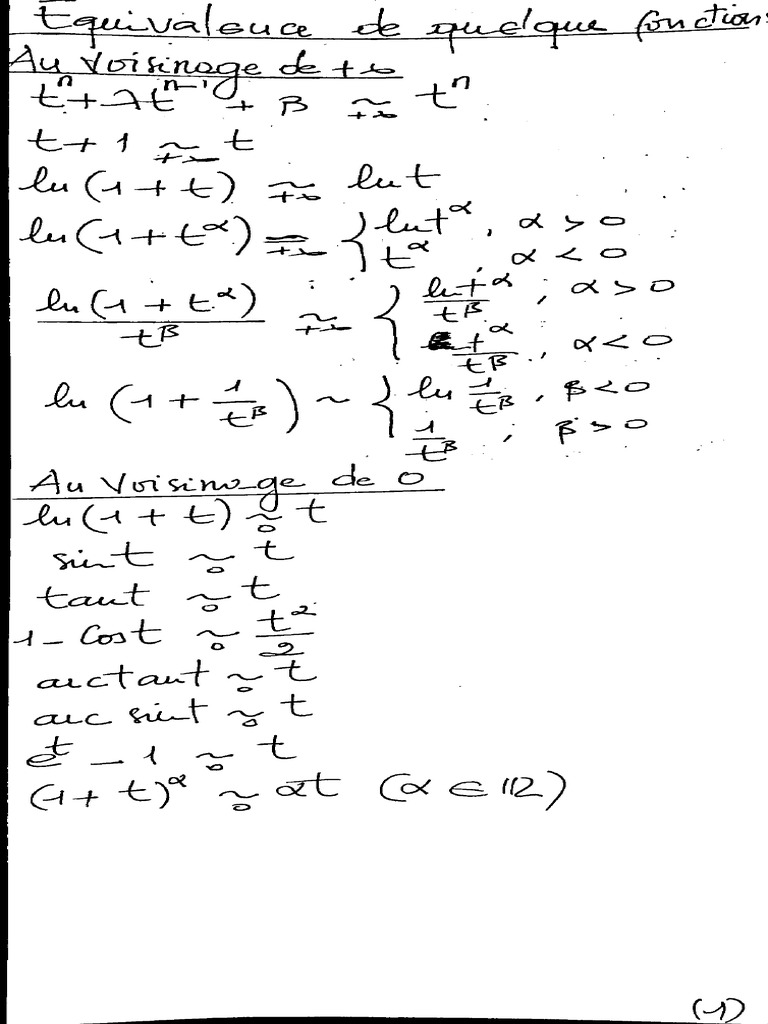 Equivalence de quelque fonctions
Au voisinage de +∞
tⁿ + λtⁿ⁻¹ + β ~+∞ tⁿ
t + 1 ~+∞ t
ln(1 + t) ~+∞ ln t
ln(1 + t^α) ~+∞ { ln t^α, α > 0
t^α, α < 0
ln(1 + t^α)/t^β ~+∞ { ln t^α/t^β ; α > 0
t^α/t^β, α < 0
ln(1 + 1/t^β) ~ { ln 1/t^β, β < 0
1/t^β ; β > 0
Au Voisinage de 0
ln(1 + t) ~0 t
sin t ~0 t
tan t ~0 t
1 - Cos t ~0 t²/2
arctan t ~0 t
arc sin t ~0 t
e^t - 1 ~0 t
(1 + t)^α ~0 αt (α ∈ ℝ)
(1)